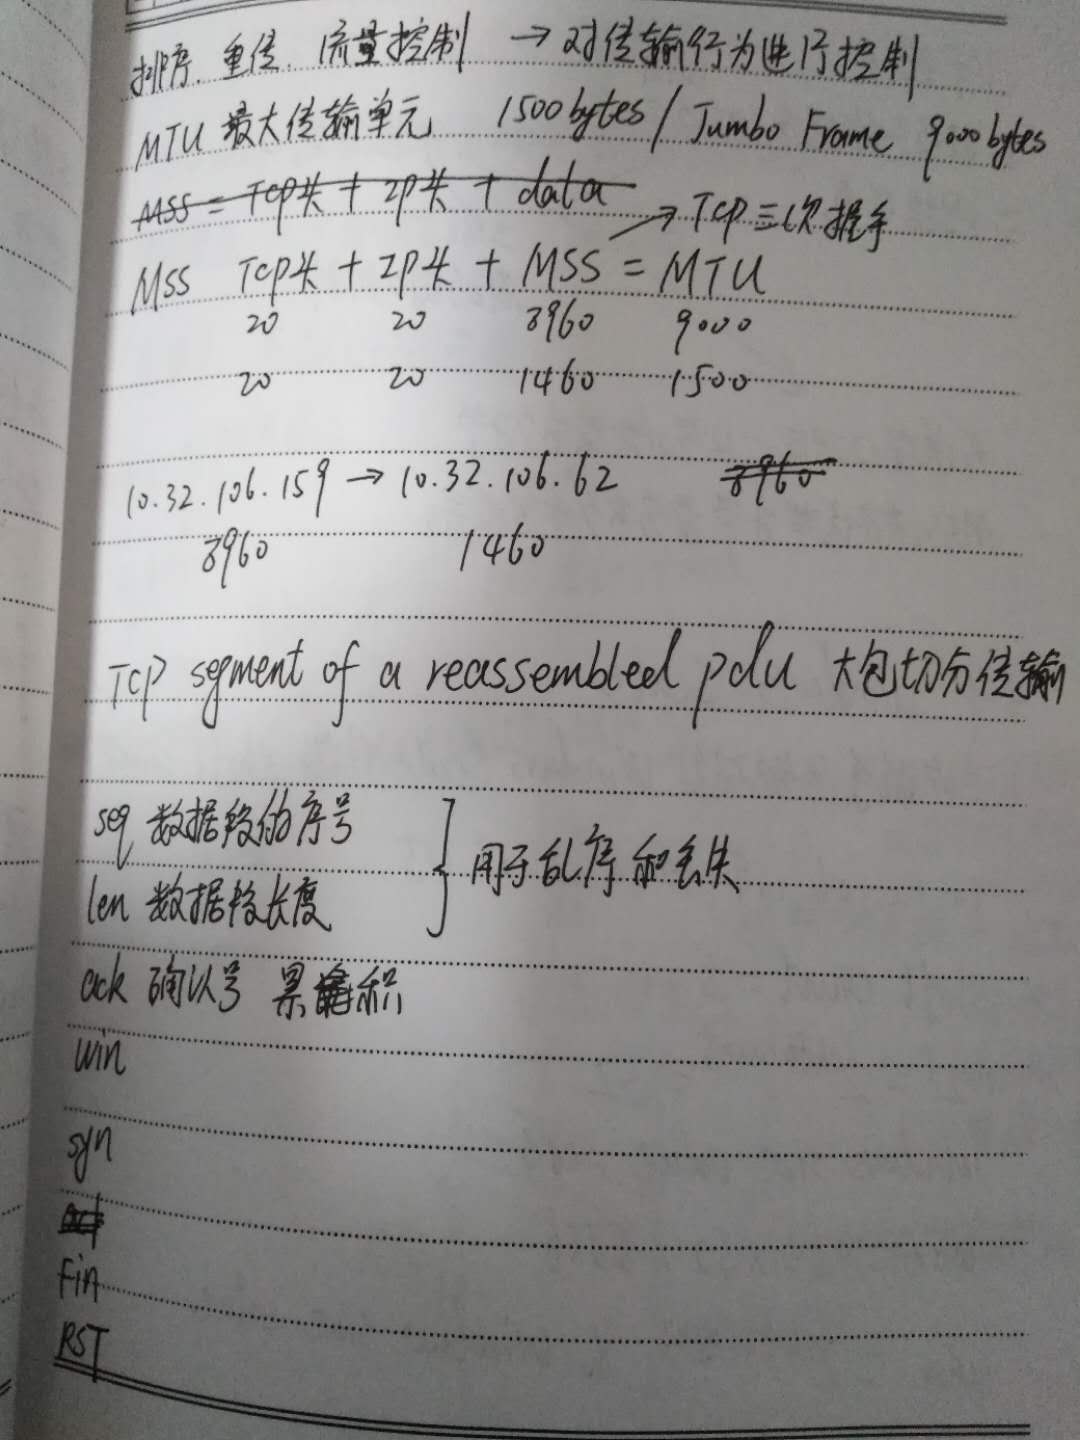 排序. 重传. 流量控制 → 对传输行为进行控制
MTU 最大传输单元 1500 bytes / Jumbo Frame 9000 bytes
MSS = Tcp头 + IP头 + data
→ Tcp 三次握手
MSS Tcp头 + IP头 + MSS = MTU
20 20 8960 9000
20 20 1460 1500
10.32.106.159 → 10.32.106.62 8960
8960 1460
Tcp segment of a reassembled pdu 大包切分传输
seq 数据段的序号
len 数据段长度
} 用于乱序和丢失
ack 确认号 累积
win
syn
Fin
RST